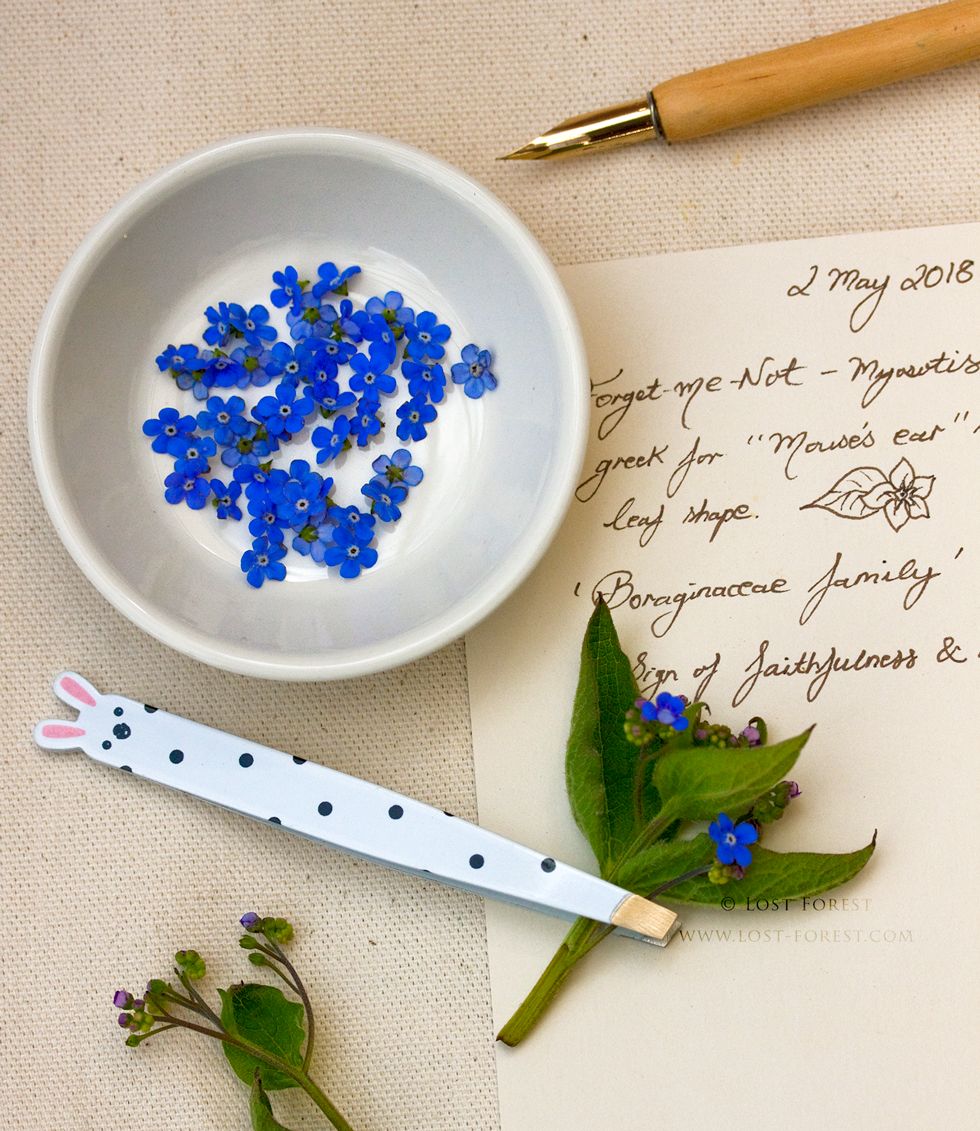 2 May 2018
Forget-me-Not - Myosotis
greek for "Mouse's ear"
leaf shape.
'Boraginaceae family'
Sign of faithfulness &
© LOST FOREST
WWW.LOST-FOREST.COM